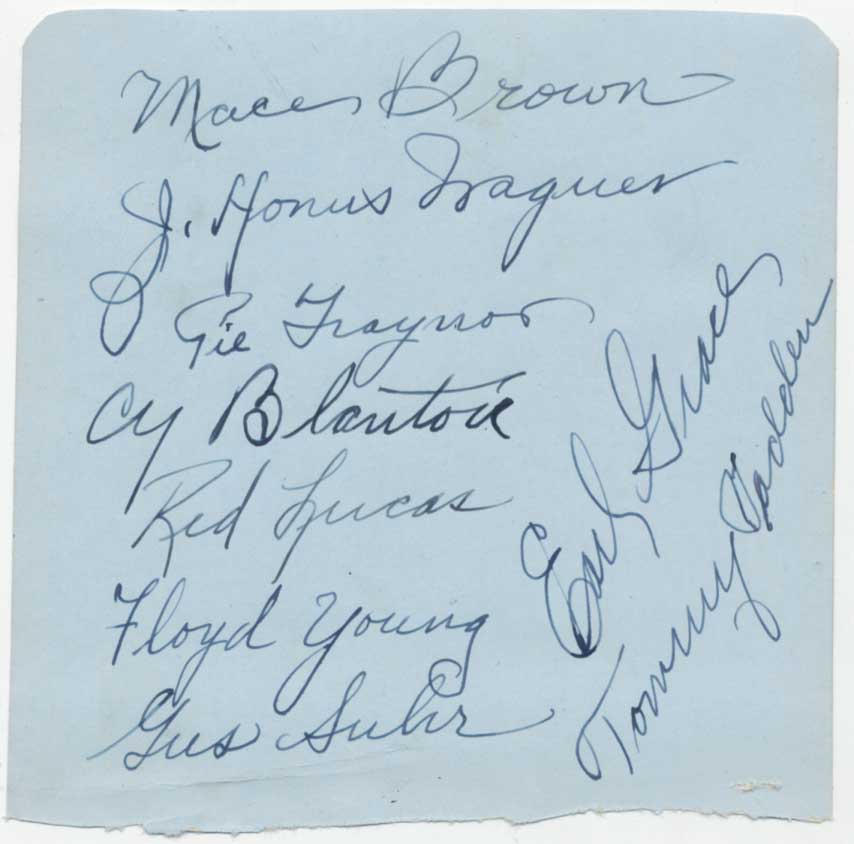 Mace Brown
J. Honus Wagner
Pie Traynor
Cy Blanton
Red Lucas
Floyd Young
Gus Suhr
Earl Grace
Tommy Padden